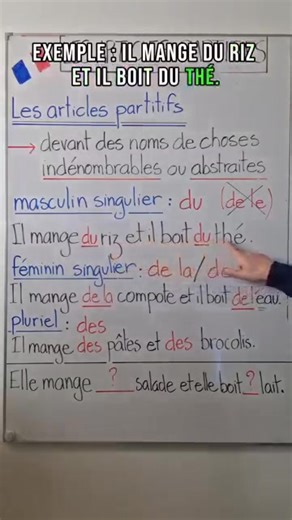 EXEMPLE : IL MANGE DU RIZ
ET IL BOIT DU THÉ.
Les articles partitifs
→ devant des noms de choses
indénombrables ou abstraites
masculin singulier : du (de le)
Il mange du riz et il boit du thé.
féminin singulier : de la/de
Il mange de la compote et il boit de l'eau.
pluriel : des
Il mange des pâtes et des brocolis.
Elle mange ? salade et elle boit ? lait.